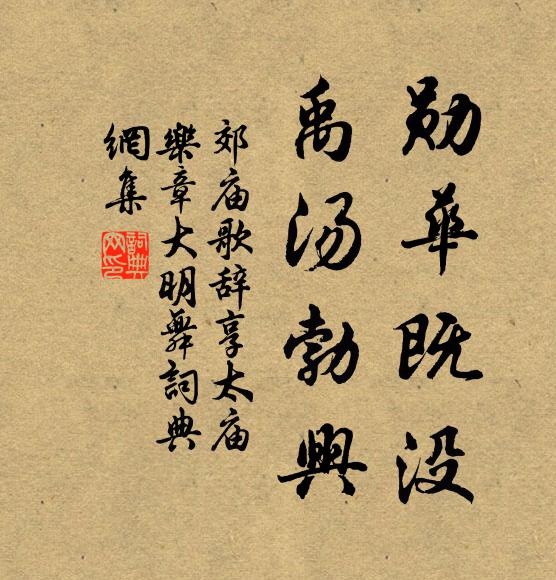 勋華既没
禹汤勃興
郊庙歌辞享太庙
樂章大明舞詞典
網集
詞典網印